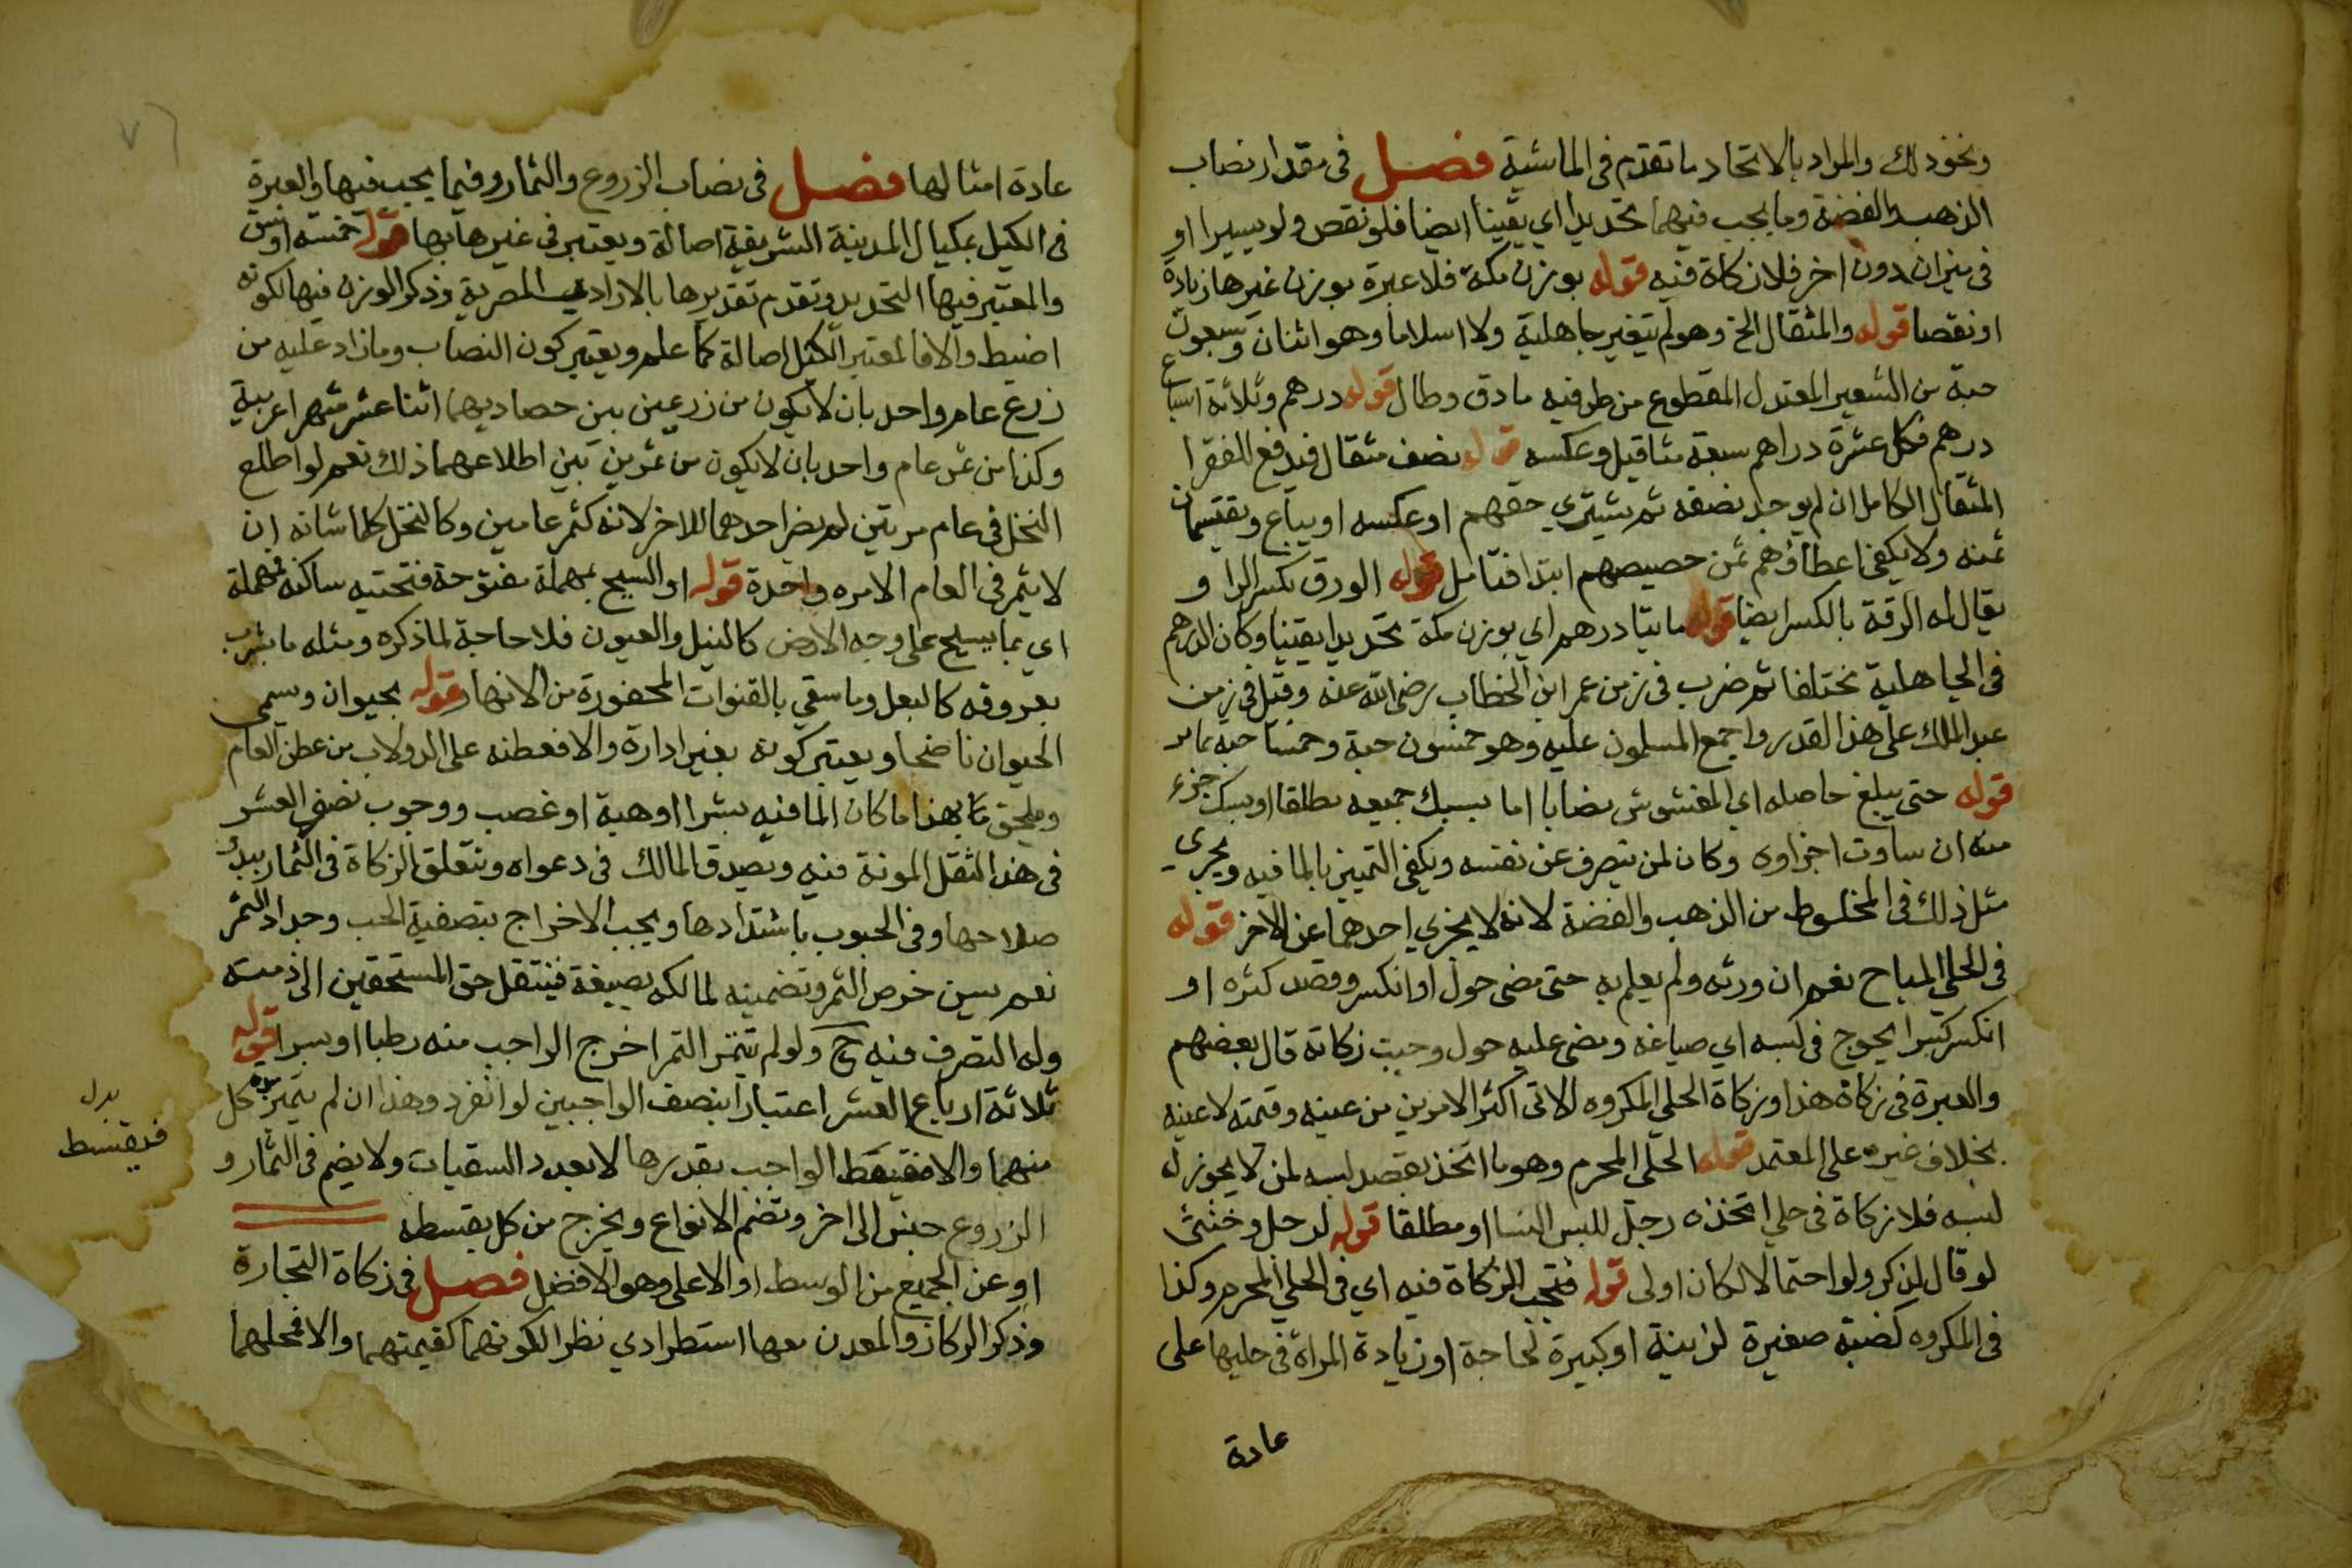 ونحو ذلك والمراد بالاتحاد ما تقدم في الماشية فصل في مقدار نصاب
الذهب والفضة وما يجب فيهما تحديدا اي يقينا ايضا فلو نقص ولو يسيرا او
في ميزان دون اخر فلا زكاة فيه قوله بوزن مكة فلا عبرة بوزن غيرها زيادة
او نقصا قوله والمثقال الخ وهو لم يتغير جاهلية ولا اسلاما وهو اثنان وسبعون
حبة من الشعير المعتدل المقطوع من طرفيه ما دق وطال قوله درهم وثلاثة اسباع
درهم فكل عشرة دراهم سبعة مثاقيل وعكسه قوله نصف مثقال فيدفع للفقرا
المثقال الكامل ان لم يوجد نصفه ثم يشتري حقهم او عكسه او يباع ويقتسمان
ثمنه ولا يكفي اعطاؤهم ثمن حصيصهم ابتدا فتامل قوله الورق بكسر الرا و
يقال له الرقة بالكسر ايضا قوله مايتا درهم اي بوزن مكة تحديدا يقينا وكان الدرهم
في الجاهلية مختلفا ثم ضرب في زمن عمر ابن الخطاب رضي الله عنه وقيل في زمن
عبد الملك على هذا القدر واجمع المسلمون عليه وهو خمسون حبة وخمسا حبة مما مر
قوله حتى يبلغ حاصله اي المغشوش نصابا اما بسبك جميعه مطلقا او بسبك جزء
منه ان ساوت اجزاوه وكان لمن يتصرف عن نفسه ويكفي التمييز بالما فيه ويجري
مثل ذلك في المخلوط من الذهب والفضة لانه لا يجزي احدهما عن الاخر قوله
في الحلي المباح نعم ان ورثه ولم يعلم به حتى مضى حول او انكسر وقصد كنزه او
انكسر كسرا يحوج في لبسه اي صياغة ومضى عليه حول وجبت زكاته قال بعضهم
والعبرة في زكاة هذا وزكاة الحلي المكروه الاتي اكثر الامرين من عينه وقيمته لا عينه
بخلاف غيره على المعتمد قوله الحلي المحرم وهو ما اتخذ بقصد لبسه لمن لا يجوز له
لبسه فلا زكاة في حلي اتخذه رجل للبس النسا او مطلقا قوله لرجل وخنثى
لو قال لذكر ولو احتمالا لكان اولى قوله فتجب الزكاة فيه اي في الحلي المحرم وكذا
في المكروه كضبة صغيرة لزينة او كبيرة لحاجة او زيادة المراة في حليها على
عادة
عادة امثالها فصل في نصاب الزروع والثمار وفيما يجب فيها والعبرة
في الكيل بمكيال المدينة الشريفة اصالة ويعتبر في غيرها بها قوله خمسة اوسق
والمعتبر فيها التحديد وتقدم تقديرها بالارادب المصرية وذكر الوزن فيها لكونه
اضبط والا فالمعتبر الكيل اصالة كما علم ويعتبر كون النصاب وما زاد عليه من
زرع عام واحد بان لا يكون من زرعين بين حصاديهما اثنا عشر شهرا عربية
وكذا من ثمر عام واحد بان لا يكون من ثمرين بين اطلاعهما ذلك نعم لو اطلع
النخل في عام مرتين لم يضم احدهما للاخر لانه كثمر عامين وكالنخل كلما شانه ان
لا يثمر في العام الا مره واحدة قوله او السيح بمهملة مفتوحة فتحتيه ساكنه فمهملة
اي بما يسيح على وجه الارض كالنيل والعيون فلا حاجة لما ذكره ومثله ما يشرب
بعروقه كالبعل وما سقي بالقنوات المحفورة من الانهار قوله بحيوان ويسمى
الحيوان ناضحا ويعتبر كونه بغير ادارة والا فعطفه على الدولاب من عطف العام
ويلحق بهذا ما كان الما فيه بشرا او هبة او غصب ووجوب نصف العشر
في هذا لثقل المونة فيه ويصدق المالك في دعواه وتتعلق الزكاة في الثمار ببدو
صلاحها وفي الحبوب باشتدادها ويجب الاخراج بتصفية الحب وجداد التمر
نعم يسن خرص الثمر وتضمينه لمالكه بصيغة فينتقل حق المستحقين الى ذمته
وله التصرف فيه ح ولو لم يتتمر التمر اخرج الواجب منه رطبا او بسرا قوله
ثلاثة ارباع العشر اعتبارا بنصف الواجبين لو انفرد وهذا ان لم يتميز كل
منهما والا فقيقط الواجب بقدرها لا بعدد السقيات ولا يضم في الثمار و
بدل
فيقسط
الزروع جنس الى اخر وتضم الانواع ويخرج من كل بقسطه
او عن الجميع من الوسط او الاعلى وهو الافضل فصل في زكاة التجارة
وذكر الركاز والمعدن معها استطرادي نظرا لكونهما كقيمتهما والا فمحلهما